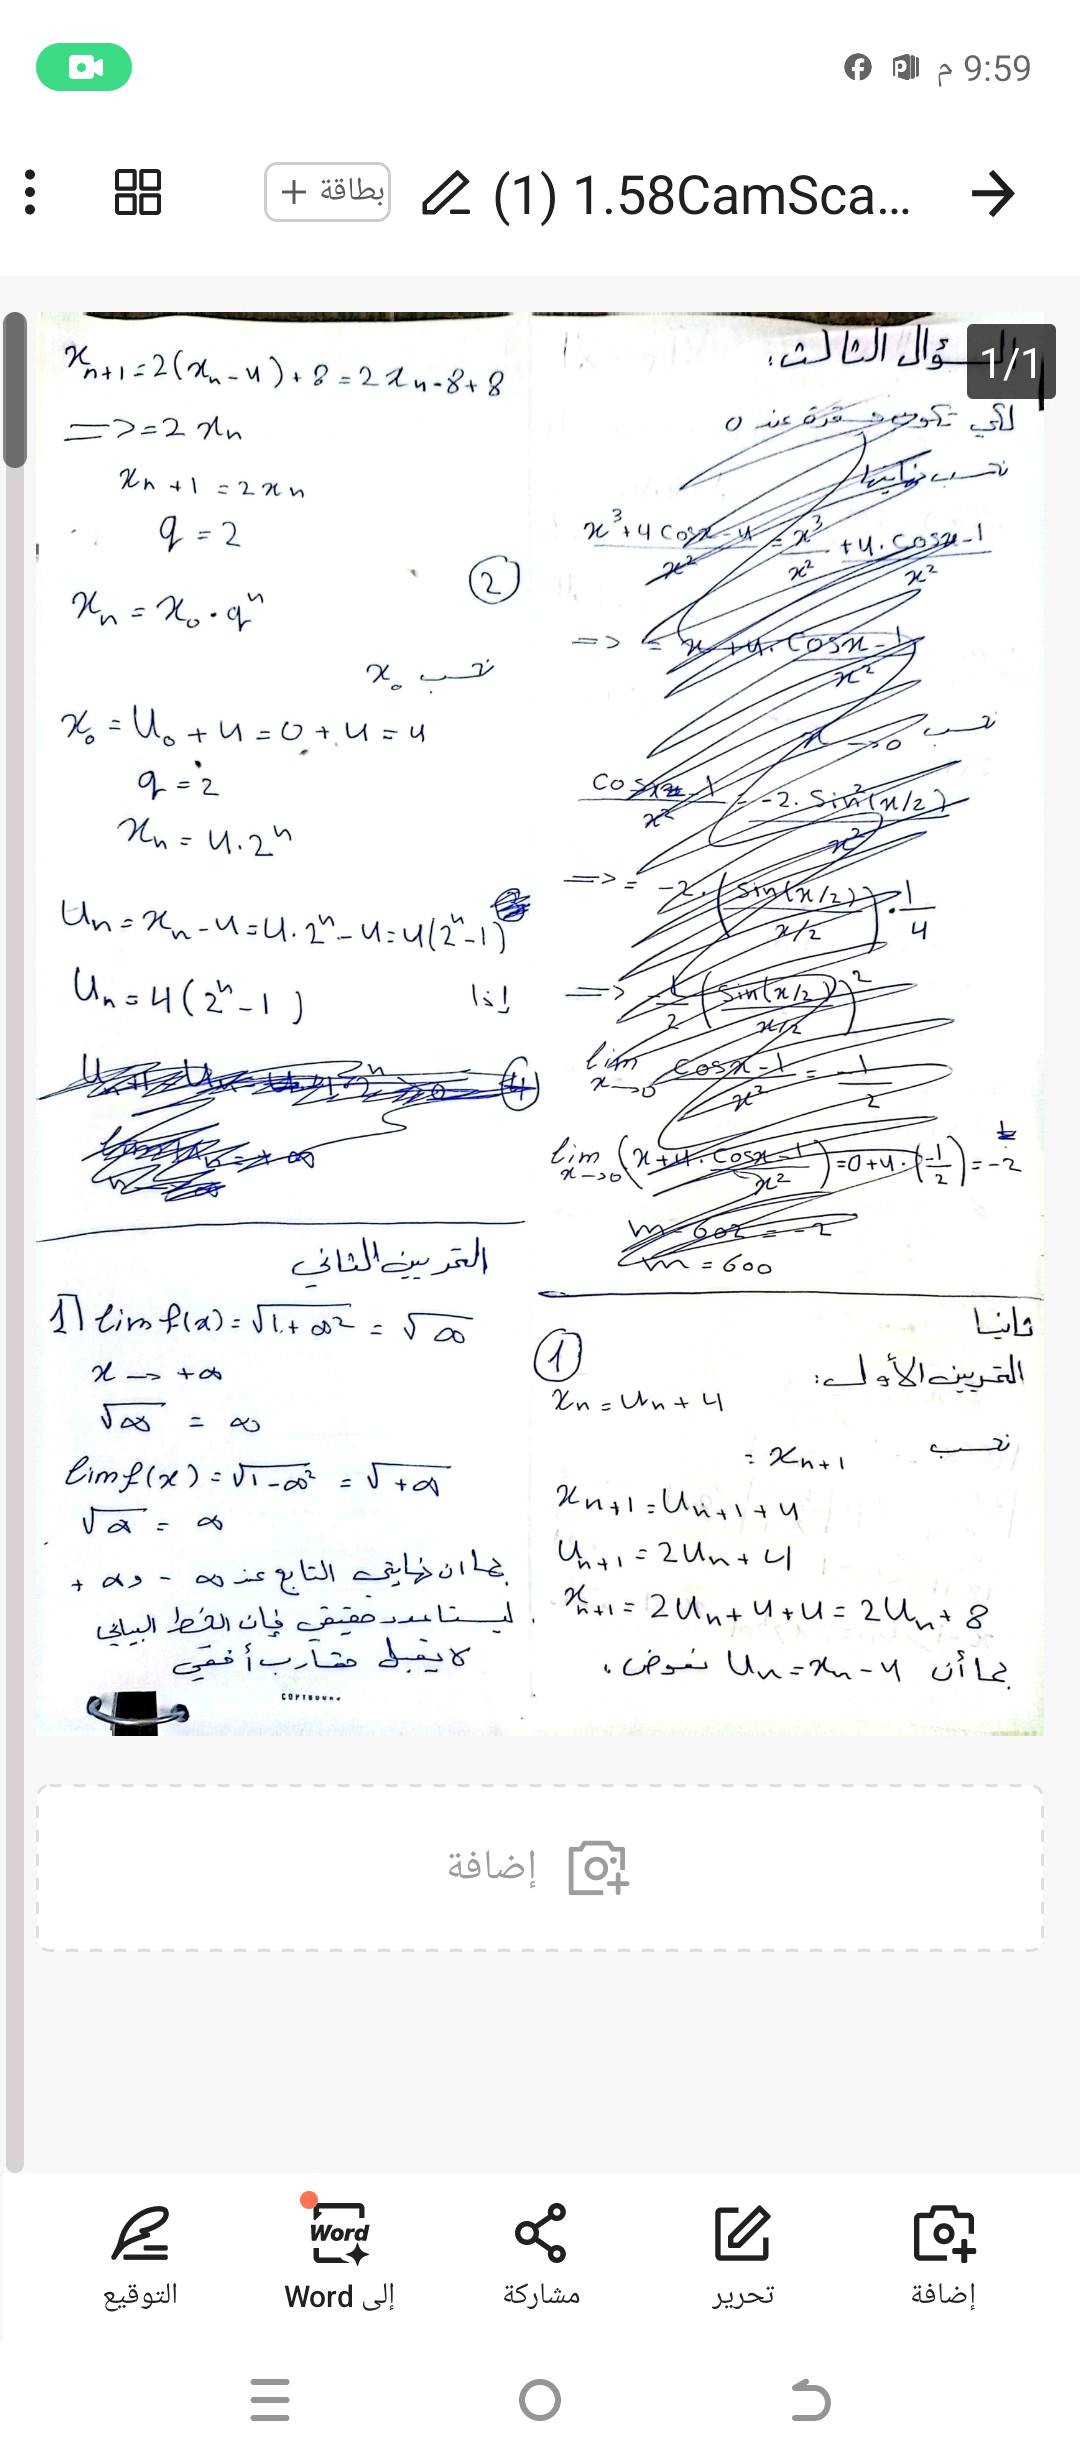 9:59 م
(1) 1.58CamSca...
بطاقة +
1/1
السؤال الثالث:
لكي تكون مستقرة عند 0
نحسب نهايتها
x³+4cosx-4 / x² = x³/x² + 4.cosx-1 / x²
=> = x+4.cosx-1 / x²
نحسب x->0
cosx-1 / x² = -2.sin²(x/2) / x²
=> = -2.(sin(x/2) / x/2).1/4
=> -1/2 (sin(x/2) / x/2)²
lim x->0 cosx-1 / x² = -1/2
lim x->0 (x+4.cosx-1 / x²) = 0+4.(-1/2) = -2
m-602 = -2
m = 600
ثانيا
التمرين الأول:
①
xn = un + 4
نحسب xn+1 =
xn+1 = Un+1 + 4
Un+1 = 2Un + 4
xn+1 = 2Un + 4 + 4 = 2Un + 8
بما أن Un = xn - 4 نعوض
xn+1 = 2(xn - 4) + 8 = 2xn - 8 + 8
=> = 2xn
xn+1 = 2xn
q = 2
②
xn = x0 . qⁿ
نحسب x0
x0 = U0 + 4 = 0 + 4 = 4
q = 2
xn = 4.2ⁿ
Un = xn - 4 = 4.2ⁿ - 4 = 4(2ⁿ-1)
إذا Un = 4(2ⁿ-1)
④
التمرين الثاني
1] lim f(x) = √1+∞² = √∞
x -> +∞
√∞ = ∞
lim f(x) = √1-∞² = √+∞
√∞ = ∞
بما ان نهايتي التابع عند ∞ - و ∞ +
ليستا عدد حقيقي فإن الخط البياني
لا يقبل مقارب أفقي
إضافة
التوقيع
إلى Word
مشاركة
تحرير
إضافة